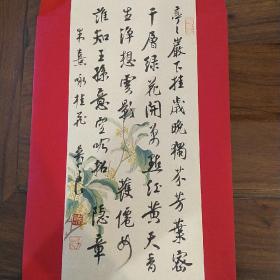 亭々巖下桂歲晚獨芬芳葉密
千層綠花開萬點黃天香
生淨想雲影護僊
誰知王孫意空詠招隱章
朱熹詠桂花